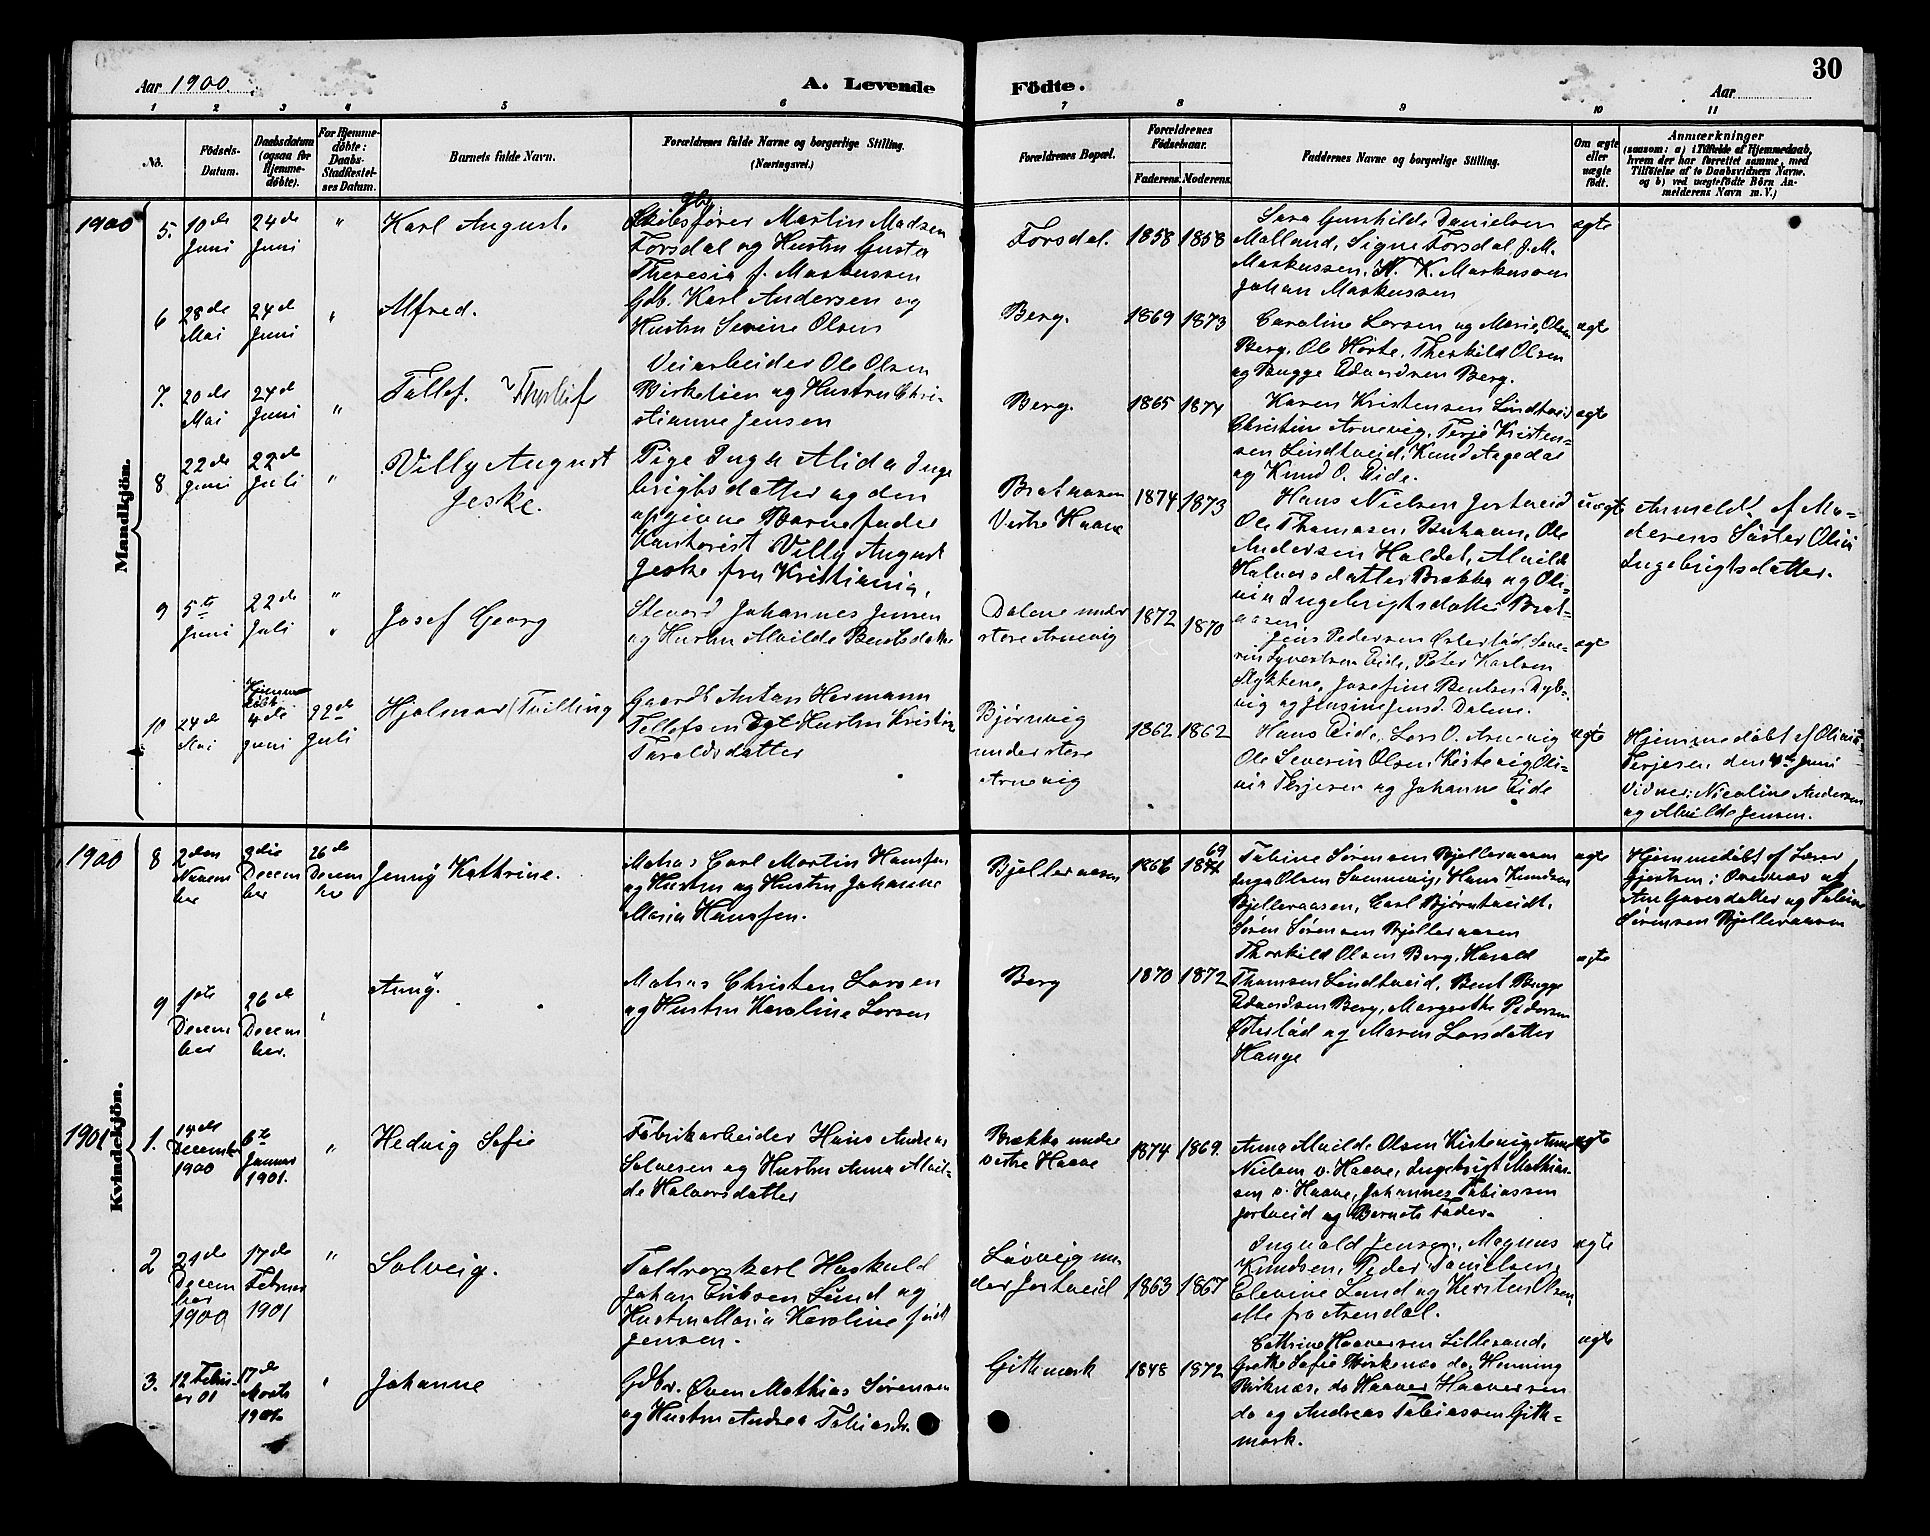 30
Aar 1900.
A. Levende
Fødte.
Aar
1 2 3 4 5 6 7 8 9 10 11
No.
Fødsels-
Datum.
Daabsdatum
(ogsaa for
Hjemme-
døbte).
For Hjemme-
døbte:
Daabs-
Stadfæstel-
ses Datum.
Barnets fulde Navn.
Forældrenes fulde Navne og borgerlige Stilling.
(Næringsvei.)
Forældrenes Bopæl.
Forældrenes
Fødselsaar.
Faderens. Moderens.
Faddernes Navne og borgerlige Stilling.
Om ægte
eller
uægte
født.
Anmærkninger
(saasom: a) i Tilfælde af Hjemmedaab,
hvem der har forrettet samme, med
Tilføielse af to Daabsvidners Navne,
og b) ved uægtefødte Børn An-
melderens Navn m. V.)
Mandkjön.
1900
5.
10de
Juni
24de
Juni
"
Karl August.
Skibsfører Martin Madsen
Forsdal og Hustru Gusta
Theresia f. Markussen
Forsdal.
1858 1858
Sara Gunhilde Danielsen
Malland, Signe Forsdal, J. M.
Markussen, N. K. Markussen
Johan Markussen
ægte
6
28de
Mai
24de
Juni
"
Alfred.
Gdb. Karl Andersen og
Hustru Serine Olsen
Berg.
1869 1873
Caroline Larsen og Marie Olsen
Berg, Ole Hørte, Therkild Olsen
og Bugge Edvardsen Berg.
ægte
7.
20de
Mai
24de
Juni
"
Tallef.
Veiarbeider Ole Olsen
Birkelien og Hustru Chri-
stianne Jensen
Berg.
1865 1874
Karen Kristensen Lindtveid
Christine Arnevig, Terje Kristen-
sen Lindtveid, Knud Aagedal
og Knud O. Eide.
ægte
8
22de
Juni
22de
Juli
"
Villy August
Jeske.
Pige Inga Alida Inge
brigtsdatter og den
opgivne Barnefader
Kontorist Villy August
Jeske fra Kristiania.
Brataasen
Vestre Haave
1874 1873
Hans Nielsen Jortveid
Ole Thomasen Buhaven, Ole
Andersen Haldal, Alvilde
Halvorsdatter Brække og Oli-
via Ingebrigtsdatter Brat-
aasen
uægte
Anmeldt af Mo-
derens Søster Olivia
Ingebrigtsdatter.
9
5te
Juni
22de
Juli
"
Josef Georg
Steuard Johannes Jensen
og Hustru Alvilde Bentsdatter
Dalene under
store Arnevig
1872 1870
Jens Pedersen Østerlåd, Seve-
rin Syvertsen Eide, Peter Karlsen
Stykkene, Josefine Bentsen Dyb-
vig og Jensine Jensd. Dalene.
ægte
10
24de
Mai
Hjemme
døbt
4de
Juni
22de
Juli
Hjalmar (Tvilling
Gaardb. Anton Hermann
Tellefsen og Hustru Kristine
Taraldsdatter
Bjørnvig
under store
Arnevig
1862 1862
Hans Eide, Lars O. Arnevig
Ole Severin Olsen Kistevig, Oli-
via Terjesen og Johanne Eide
ægte
Hjemmedøbt af Olivia
Terjesen den 4de Juni
Vidner: Nicoline Andersen
og Alvilde Jensen.
Kvindekjön.
1900
8
2den
Novem
ber
9die
Decem
ber
26de
Decem
ber
Jenny Kathrine.
Matros Carl Martin Hansen
og Hustru og Hustru Johanne
Maria Hansen.
Bjelleraasen
1866 1874
69
Tabine Sørensen Bjelleraasen
Inga Olsen Sømmevig, Hans Knudsen
Bjelleraasen, Carl Bjørntveidt,
Søren Sørensen Bjelleraasen
ægte
Hjemmedøbt af Lærer
Gjertsen i Overnæs af
Ane Gaversdatter og Tabine
Sørensen Bjelleraasen
9
1ste
Decem
ber
26de
Decem
ber.
"
Anny.
Matros Christen Larsen
og Hustru Karoline Larsen
Berg
1870 1872
Thorkild Olsen Berg, Harald
Thomsen Lindtveid, Bent Bugge
Edvardsen Berg, Margrethe Pedersen
Østerlåd og Maren Larsdatter
Hauge
ægte
1901
1.
14de
December
1900
6te
Januar
1901.
"
Hedvig Sofie
Fabrikarbeider Hans Andreas
Salvesen og Hustru Anna Alvil-
de Halvorsdatter
Brække under
vestre Haave
1874 1869.
Anna Alvilde Olsen Kistevig, Anne
Nielsen v. Haave, Ingebrigt Mathias-
sen v. Haave, Johannes Tobiassen
Jortveid og Barnets Fader.
ægte
2
21de
Decem
ber
1900
17de
Februar
1901
"
Solveig.
Toldverskarl Haskuld
Johan Eriksen Lund og
Hustru Maria Karoline født
Jensen.
Løvveig un-
der Jortveid
1863 1867
Ingvald Jensen, Magnus
Knudsen, Peder Danielsen,
Elevine Lund og Kirsten Olsen,
alle fra Arendal.
ægte
3.
12 Febru-
ar 01
17de
Marts
1901.
"
Johanne
Gdbr. Oven Mathias Sørensen
og Hustru Andrea Tobiasdr.
Githmark
1848 1872
Cathrine Haaversen Lillesand,
Grethe Sofie Birkenæs do, Henning
Birknæs, do Haaver Haaversen
do og Andreas Tobiassen Gith-
mark.
ægte